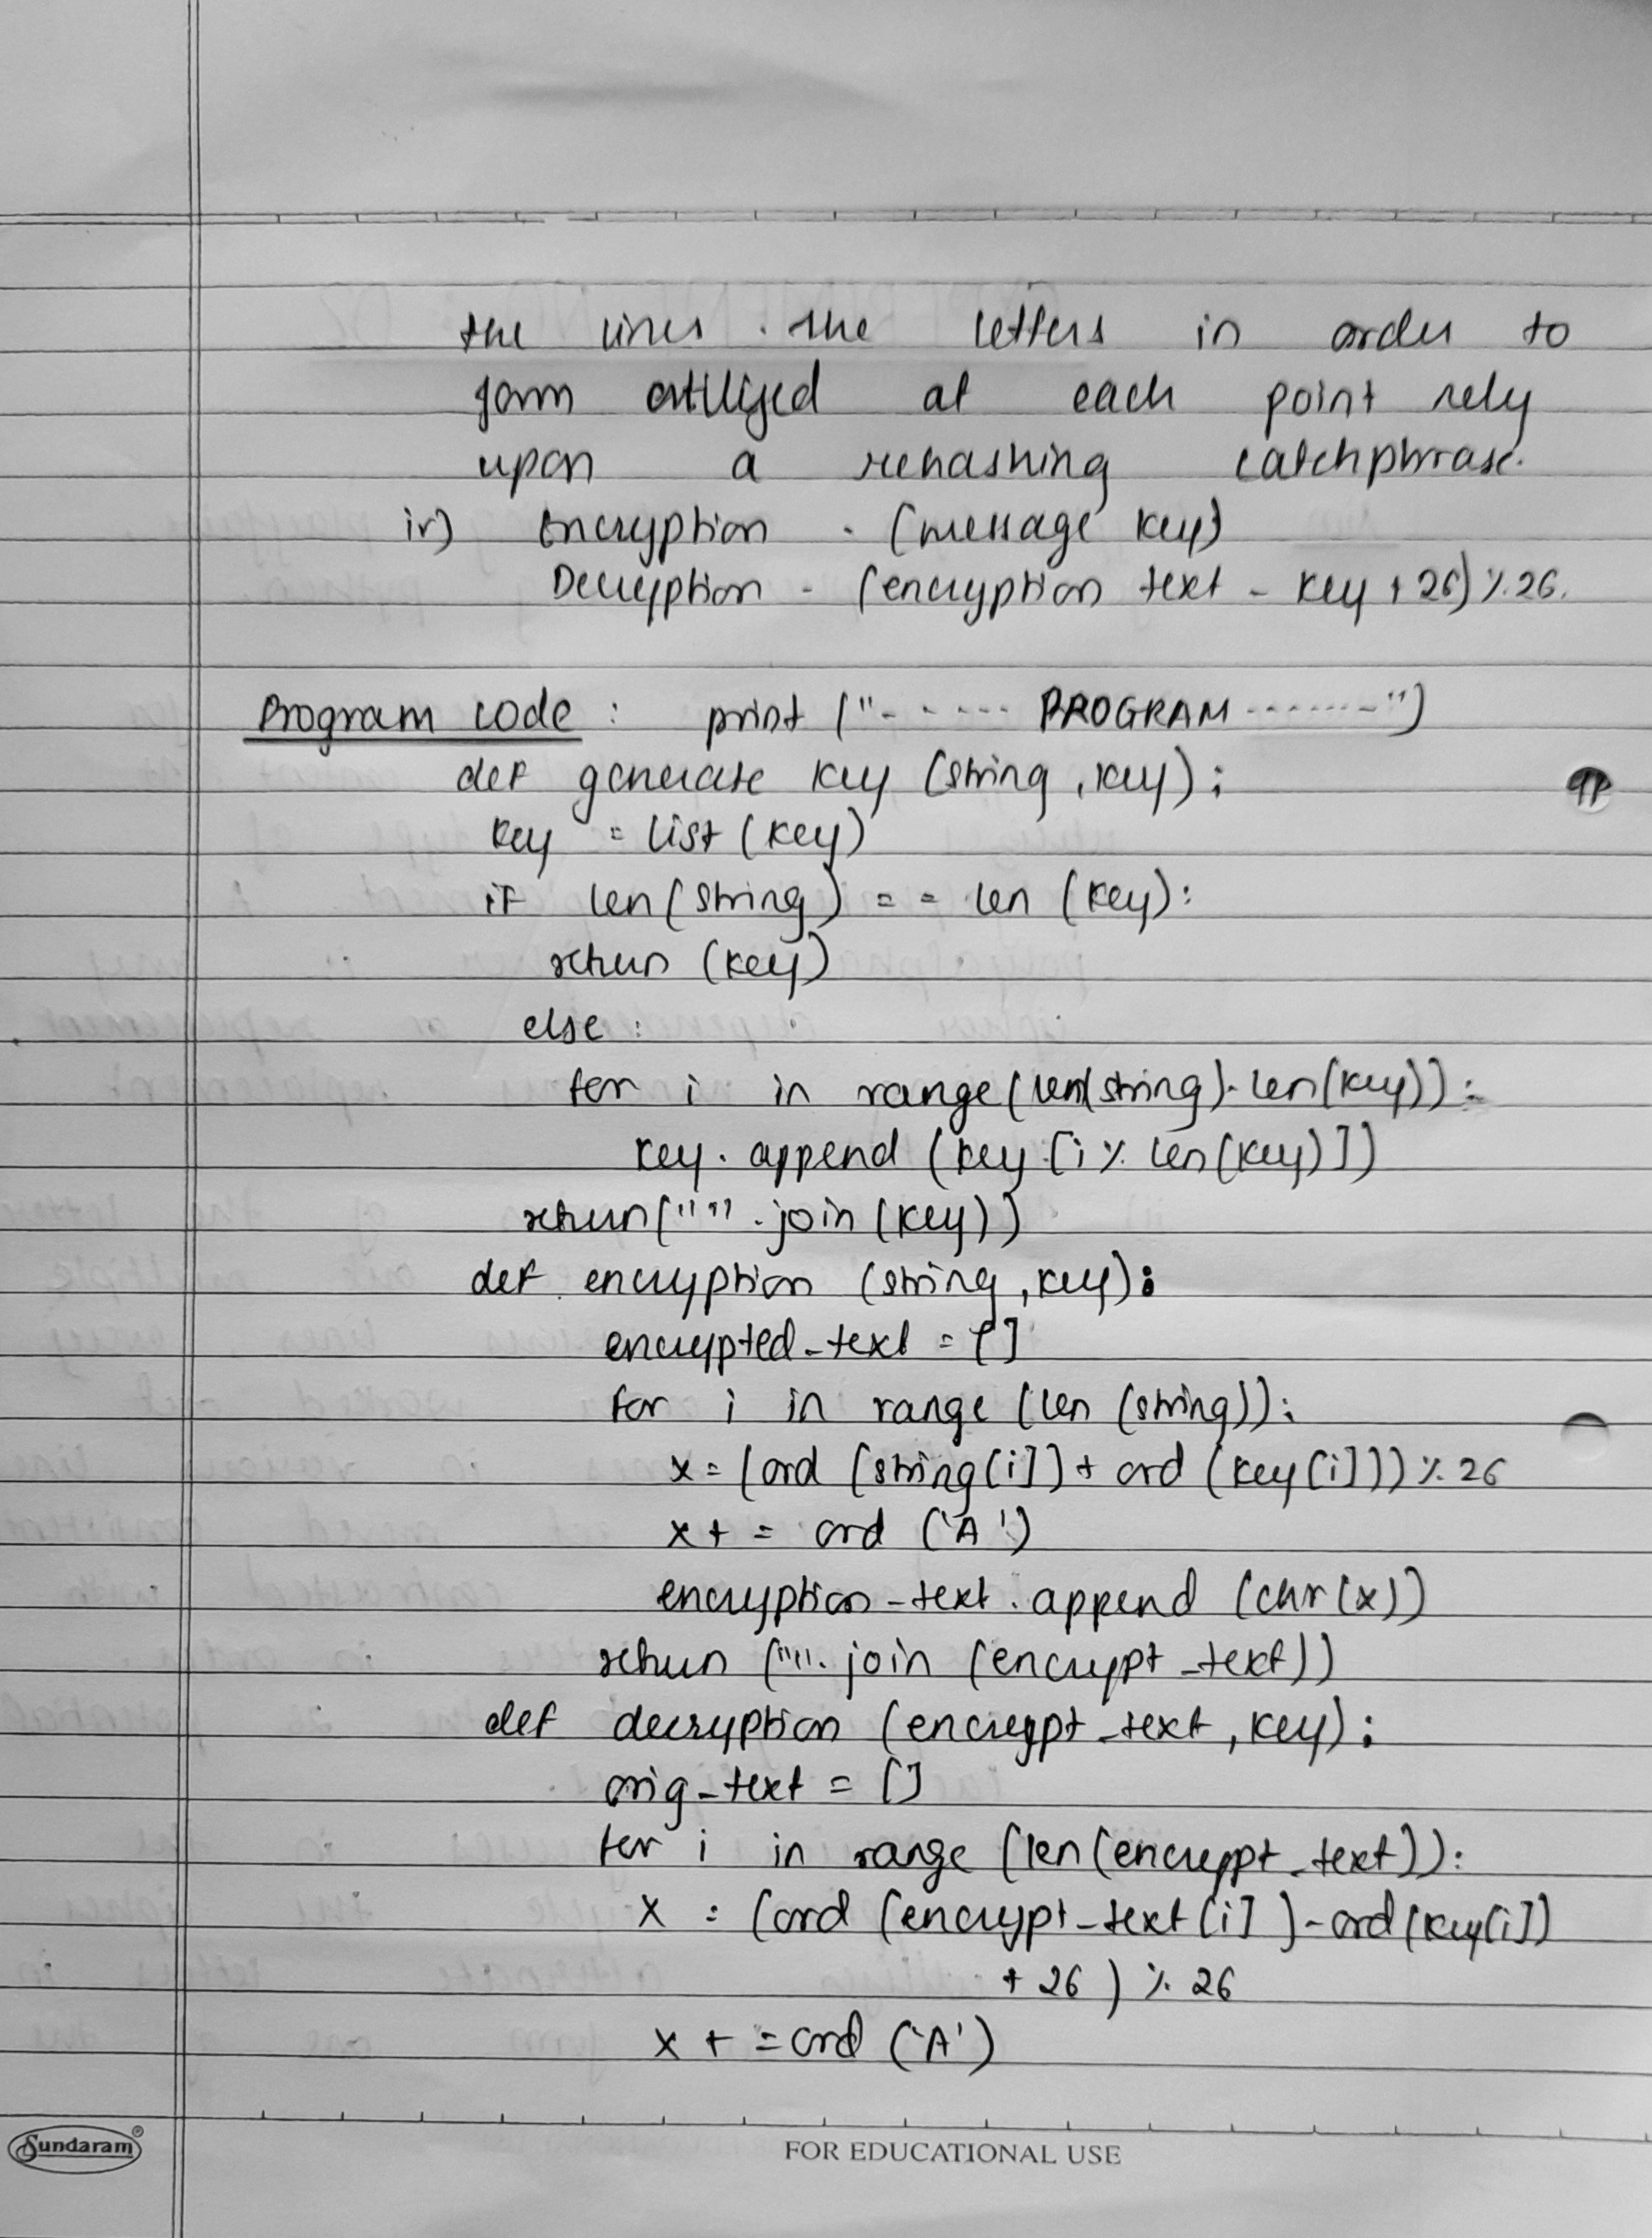 the lines . the letters in order to
form utilized at each point rely
upon a rehashing catchphrase.
iv) Encryption - (message key)
Decryption - (encryption text - key + 26) % 26.
Program code : print ("- - - - - PROGRAM - - - - - - -")
def generate key (string, key) :
key = list (key)
if len (string) = = len (key) :
return (key)
else :
for i in range (len(string) - len(key)) :
key . append (key [i % len (key)])
return ("" . join (key))
def encryption (string, key) :
encrypted_text = []
for i in range (len (string)) :
x = (ord (string[i]) + ord (key[i])) % 26
x + = ord ('A')
encryption_text . append (chr(x))
return ("" . join (encrypt_text))
def decryption (encrypt_text, key) :
orig_text = []
for i in range (len (encrypt_text)) :
x = (ord (encrypt_text [i] ) - ord (key[i])
+ 26 ) % 26
x + = ord ('A')
Sundaram®
FOR EDUCATIONAL USE